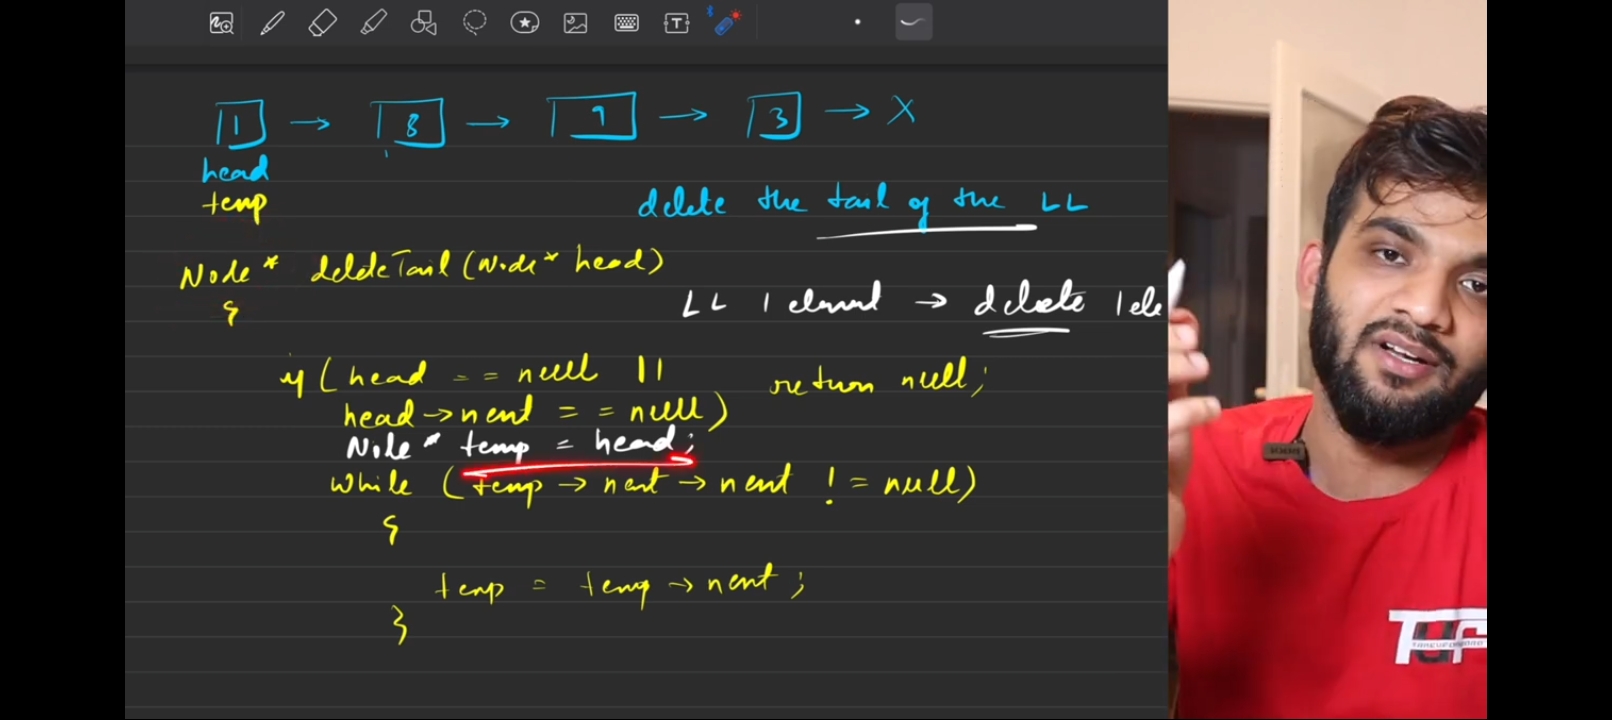 1 → 8 → 9 → 3 → X
head
temp
delete the tail of the LL
Node* deleteTail(Node* head)
{
LL 1 element → delete 1 ele
if (head == null ||
head→next == null) return null;
Node* temp = head;
while (temp → next → next != null)
{
temp = temp → next;
}
TUF